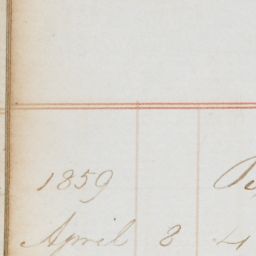 1859
April 8 4